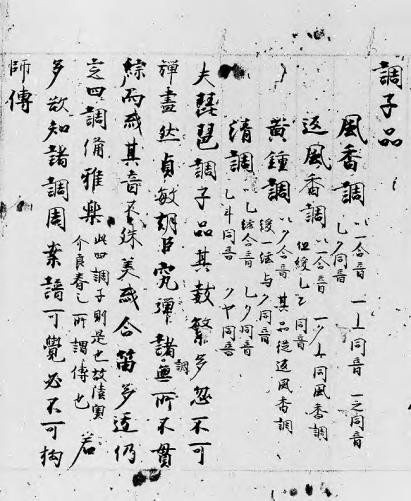 調子品
風香調 一ム合音 一丄同音 一之同音
乚夕同音
返風香調 ハ合音 一ク丄同風香調
但緩乚乙同音
黄鍾調 ハク合音 其品従返風香調
緩一绞与ク同音
清調 一乚绞合音 乚夕同音
乚斗同音 クヤ同音
夫琵琶調子品其数繁多忽不可
殫盡然貞敏朝臣究弾諸調無所不貫
綜而或其音不殊美或合笛多迂仍
定四調備雅樂 此四調子則是也故陸奥
介良春之所謂傳也 若
多欲知諸調周案譜可覺必不可拘
師傳